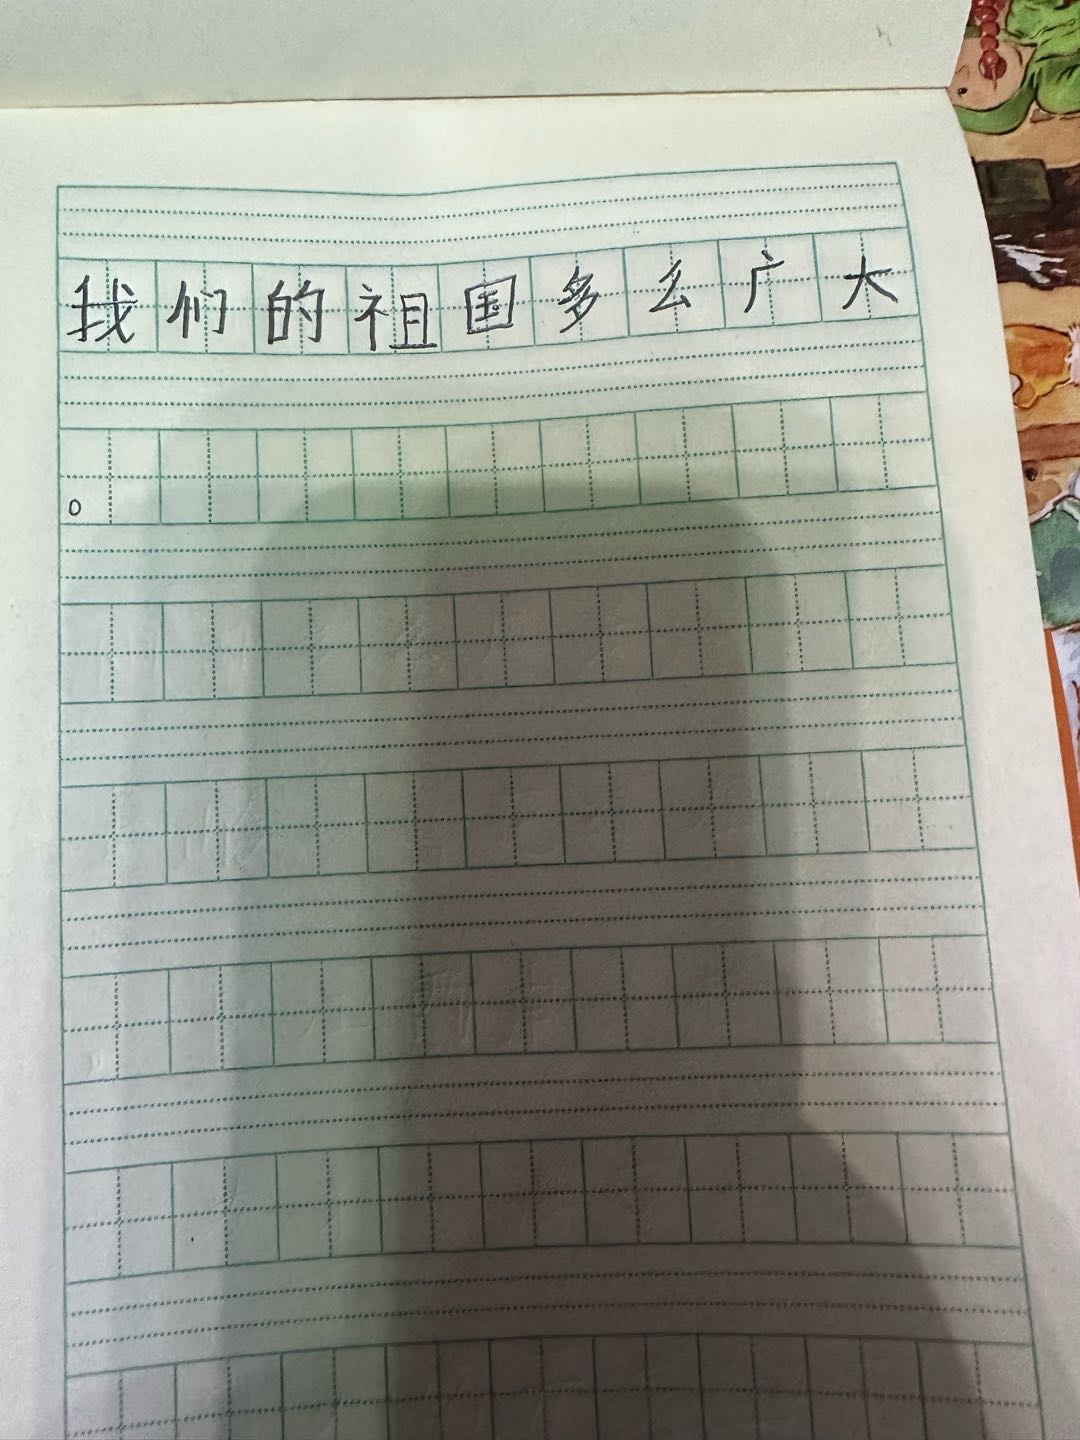 我们的祖国多么广大
。